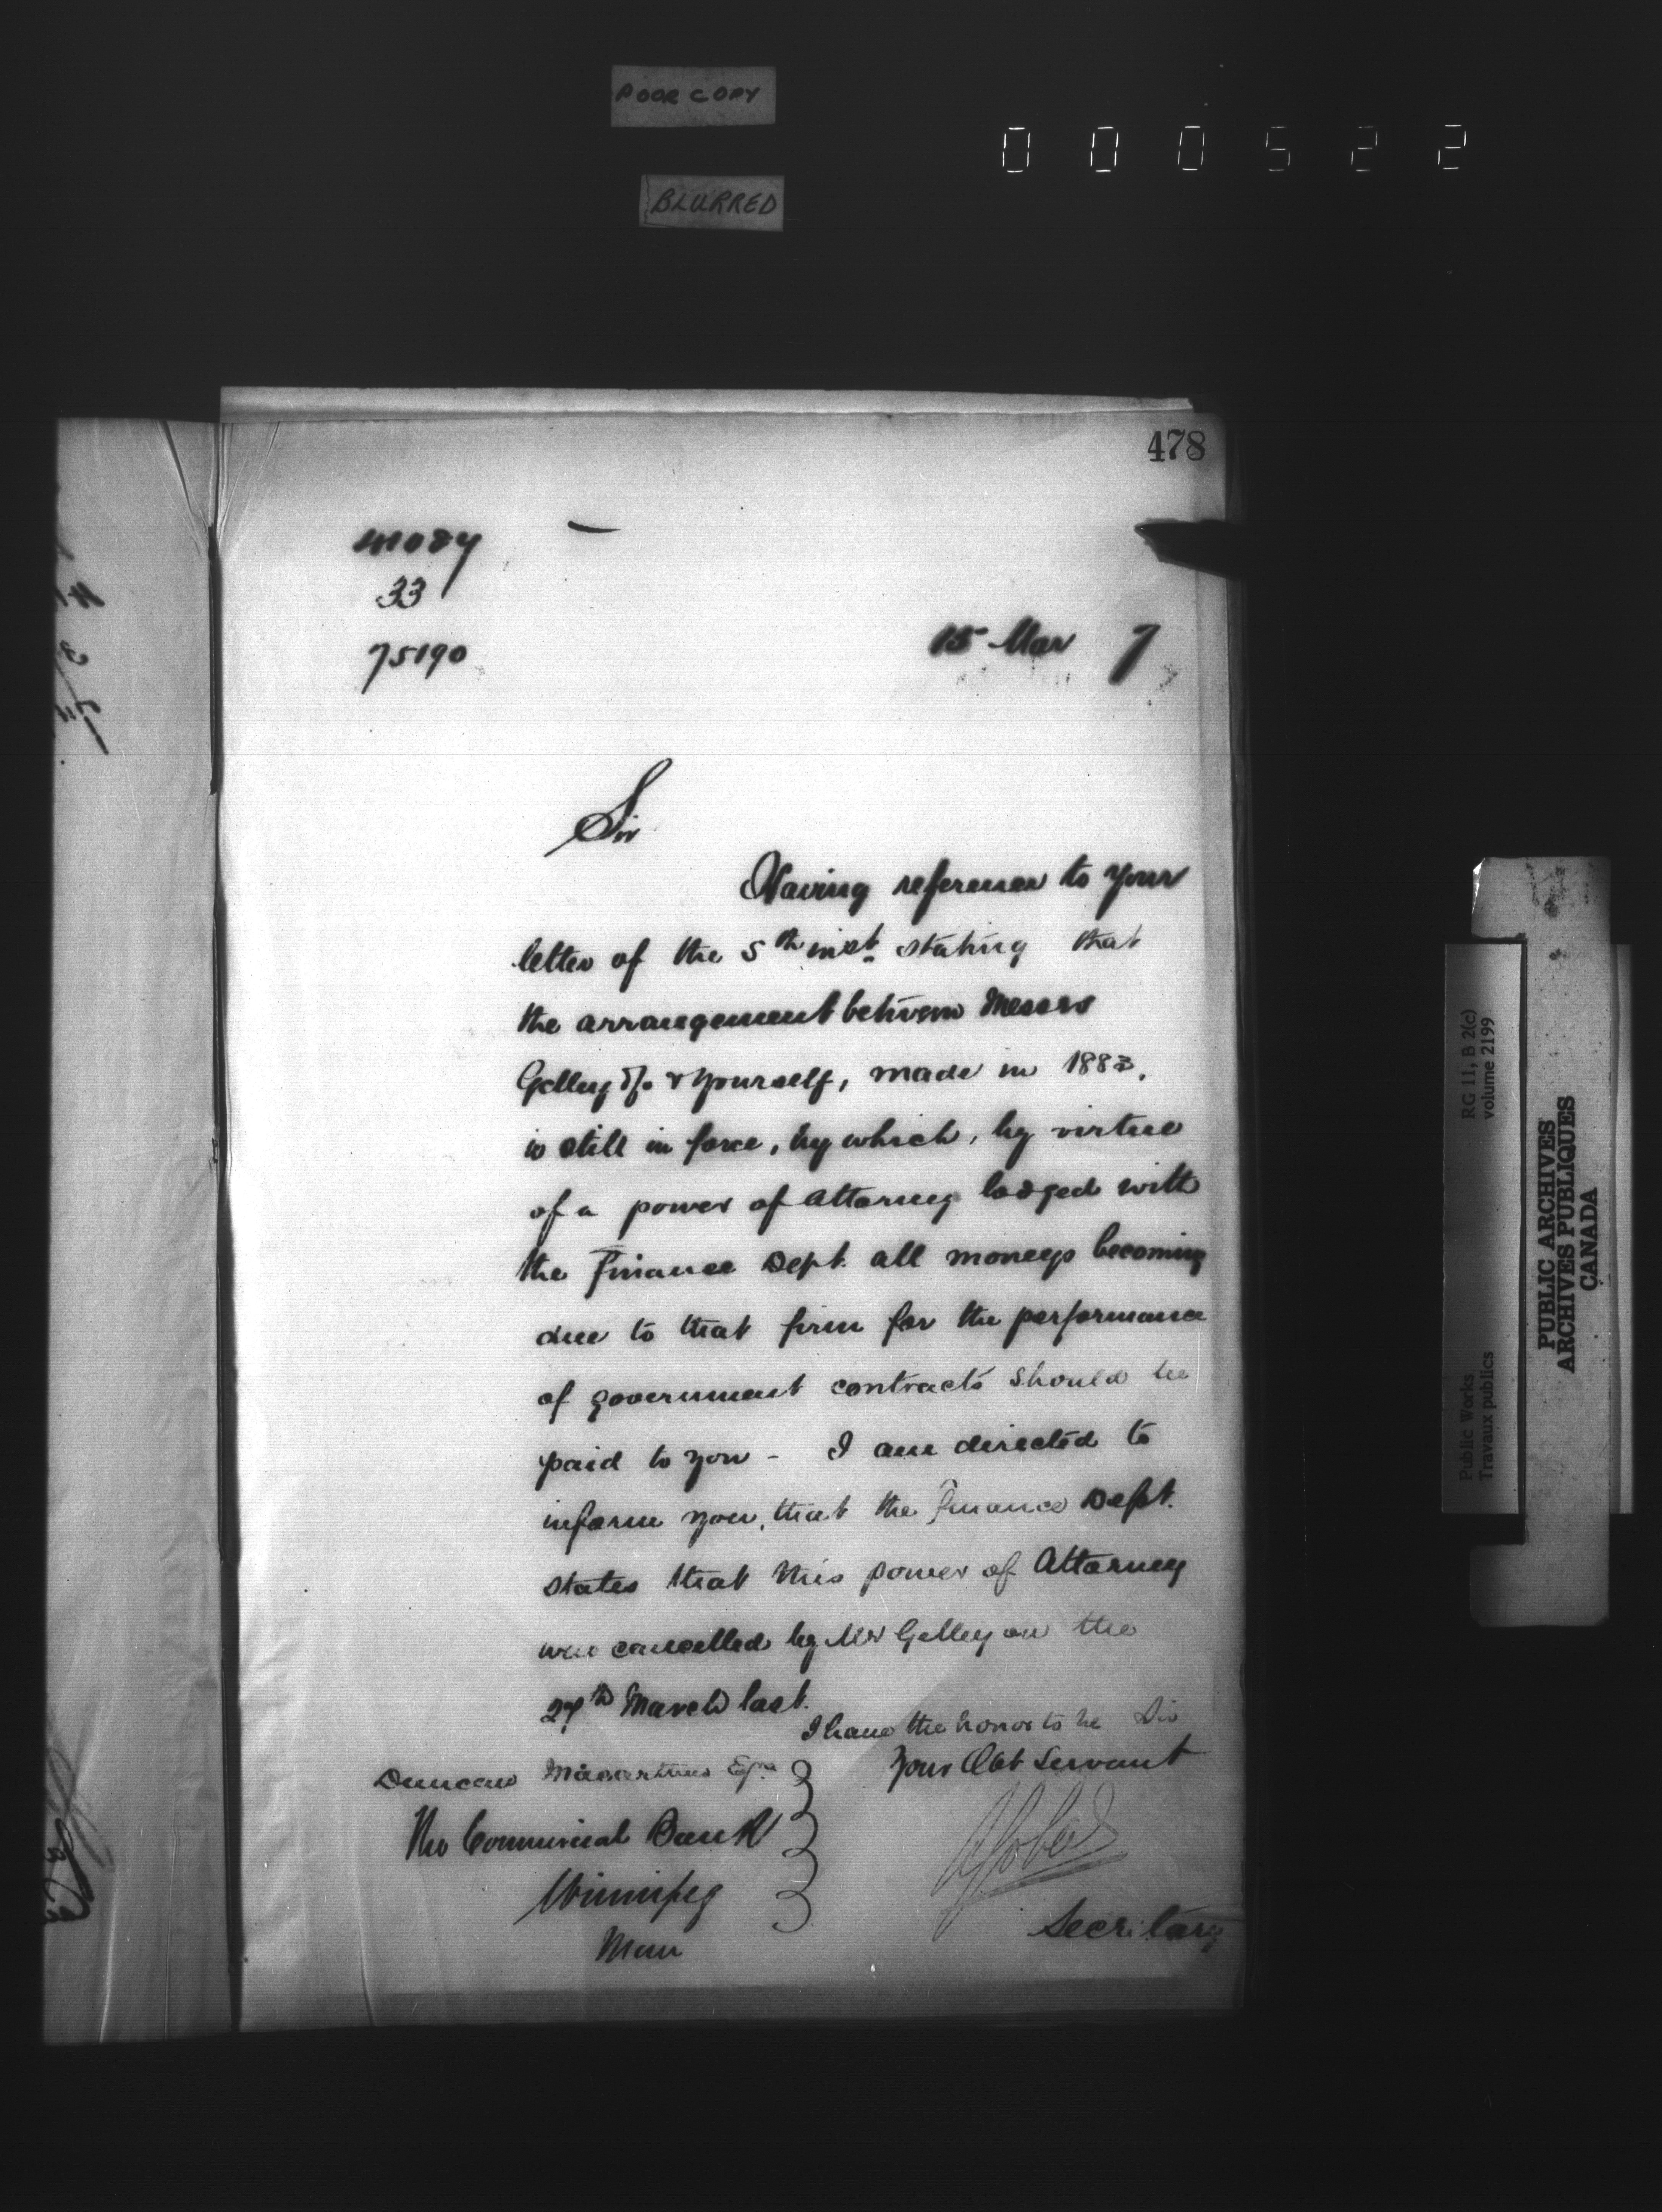 POOR COPY
000522
BLURRED
478
33
75190
15 Mar 7
Sir
Having reference to your
letter of the 5th inst. stating that
the arrangement between Messrs
Gelley & Yourself, made in 1883,
is still in force, by which, by virtue
of a power of Attorney lodged with
the Finance Dept. all moneys becoming
due to that firm for the performance
of government contracts should be
paid to you - I am directed to
inform you, that the Finance Dept.
states that this power of Attorney
was cancelled by Mr Gelley on the
27th March last.
I have the honor to be Sir
Your Obt Servant
Duncan Esqre
The Commercial Bank
Winnipeg
Man
Secretary
RG 11, B 2(c)
volume 2199
Public Works
Travaux publics
PUBLIC ARCHIVES
ARCHIVES PUBLIQUES
CANADA